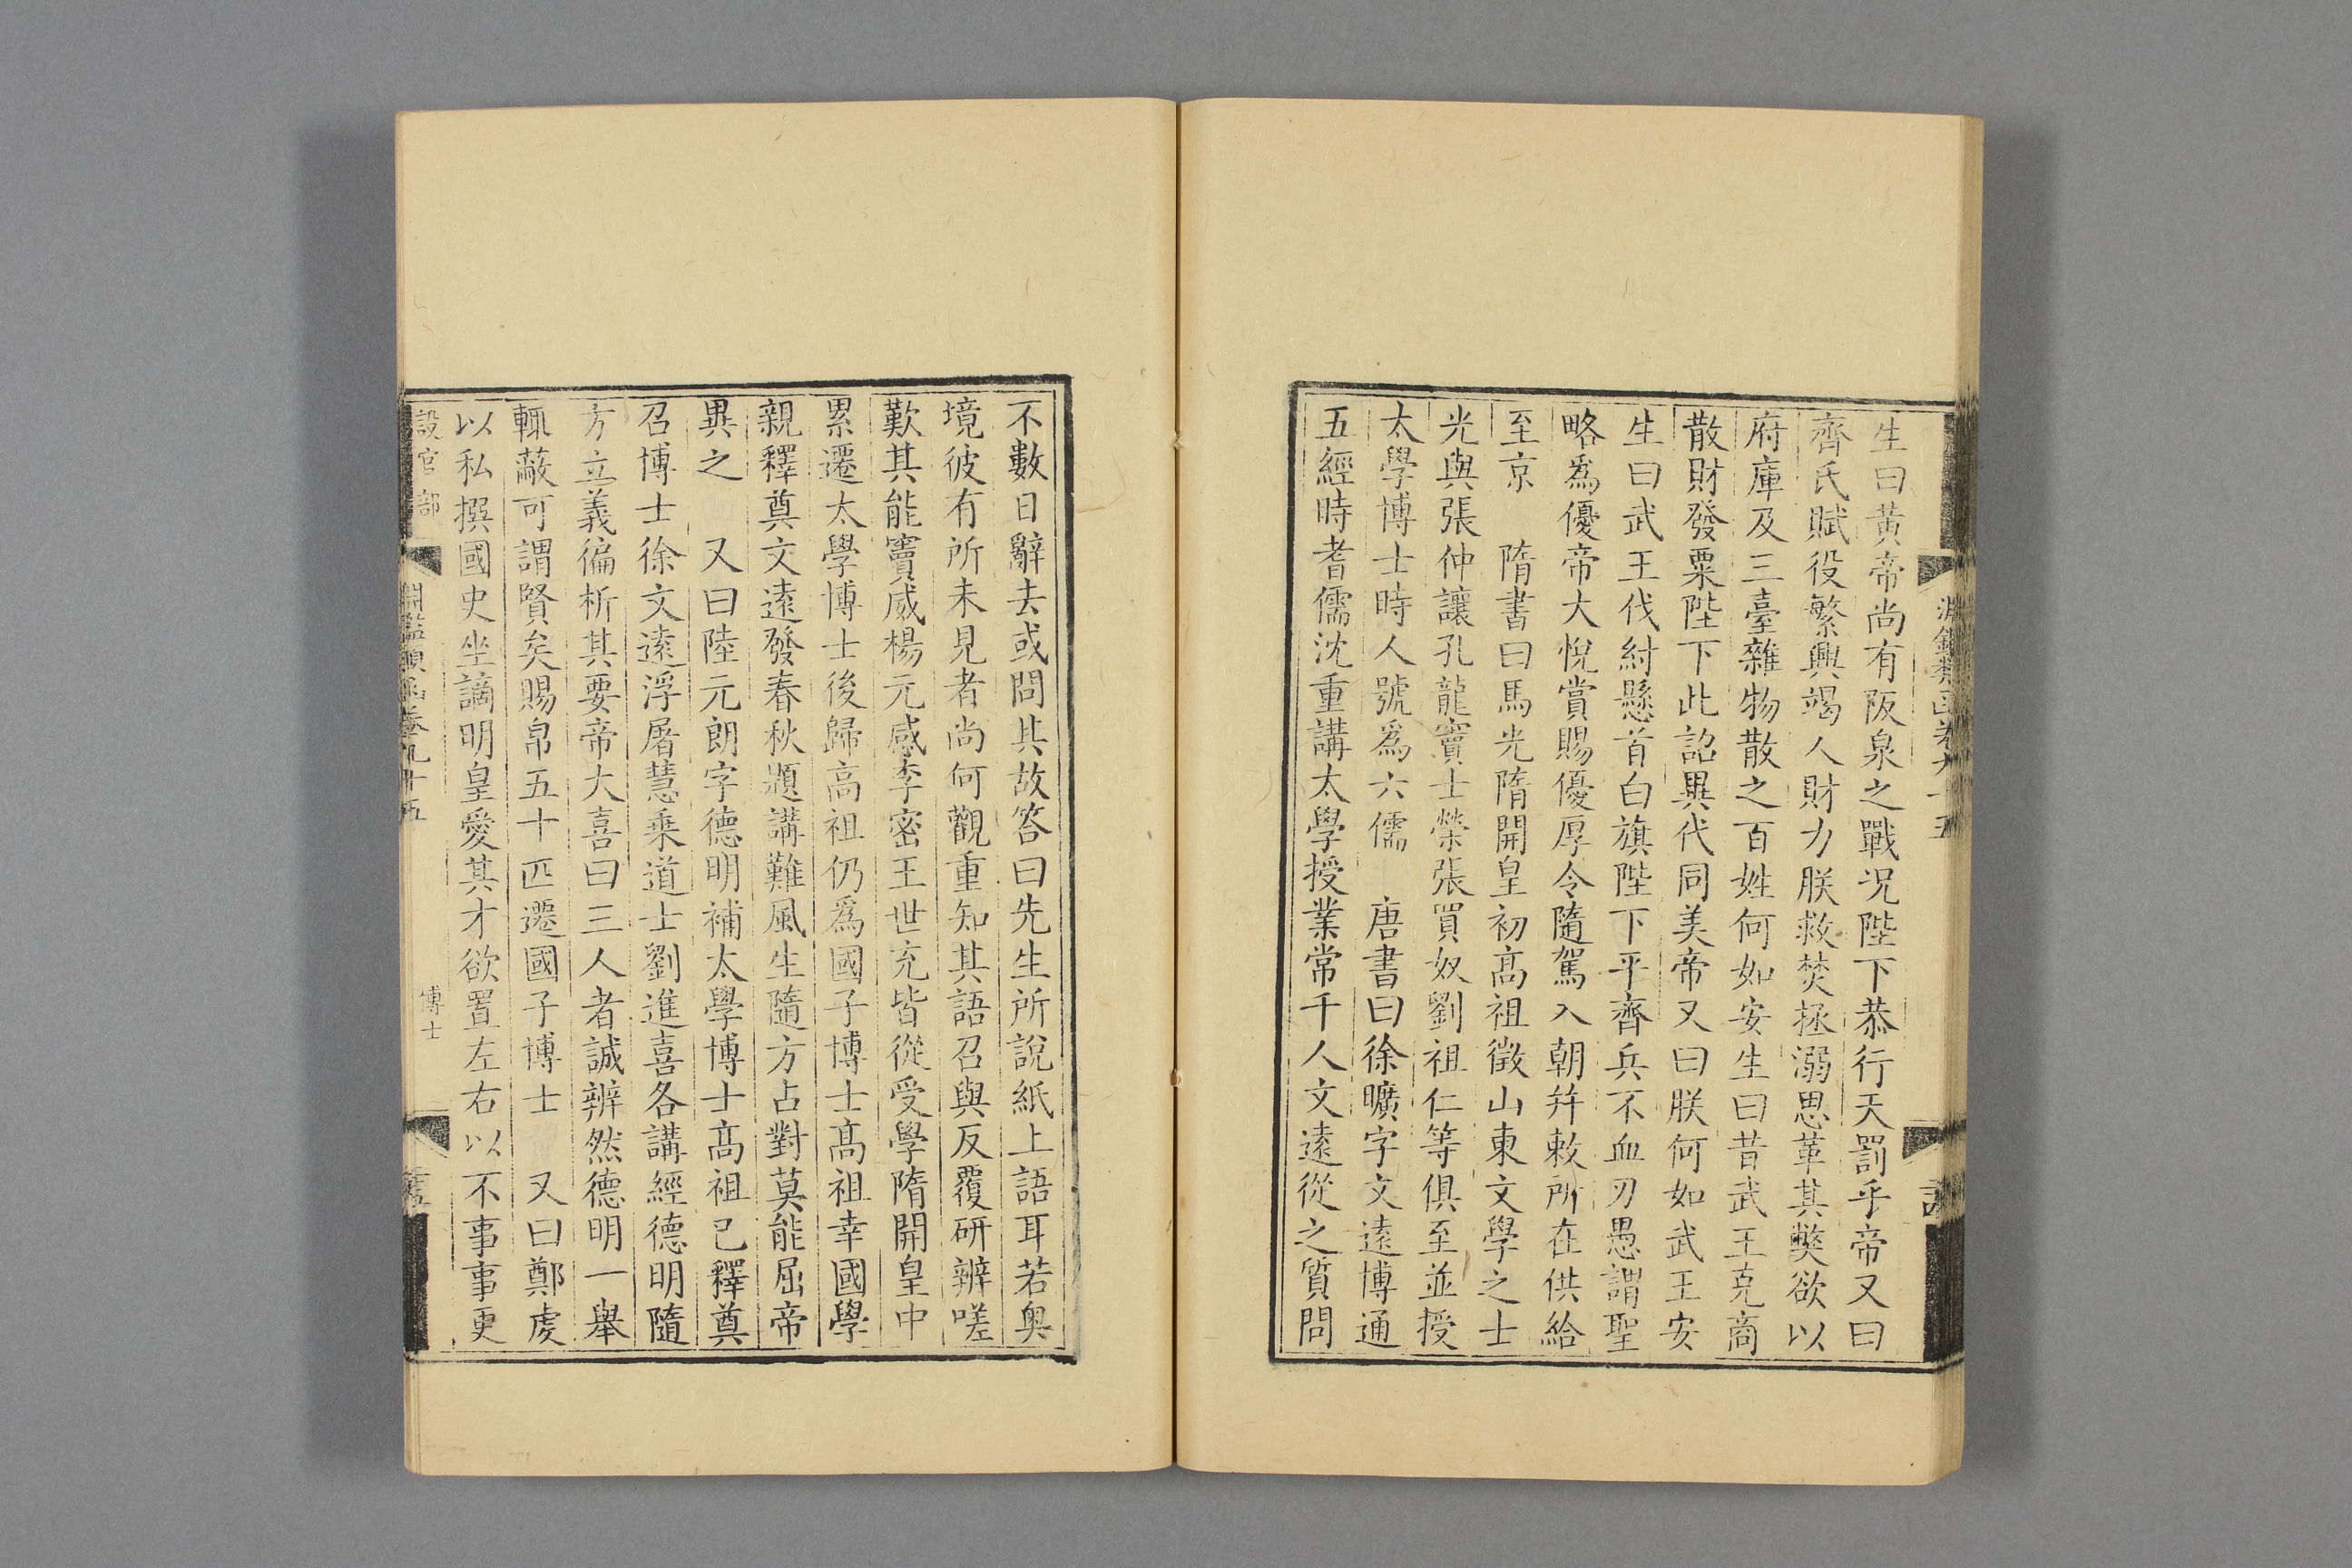 生曰黄帝尚有阪泉之戰况陛下恭行天罰乎帝又曰
齊氏賦役繁興竭人財力朕救焚拯溺思革其弊欲以
府庫及三臺雜物散之百姓何如安生曰昔武王克商
散財發粟陛下此詔異代同美帝又曰朕何如武王安
生曰武王伐紂懸首白旗陛下平齊兵不血刃愚謂聖
略爲優帝大悅賞賜優厚令隨駕入朝并敕所在供給
至京　隋書曰馬光隋開皇初高祖徵山東文學之士
光與張仲讓孔龍竇士榮張買奴劉祖仁等俱至並授
太學博士時人號爲六儒　唐書曰徐曠字文遠博通
五經時耆儒沈重講太學授業常千人文遠從之質問
不數日辭去或問其故答曰先生所說紙上語耳若奧
境彼有所未見者尚何觀重知其語召與反覆研辨嗟
歎其能竇威楊元感李密王世充皆從受學隋開皇中
累遷太學博士後歸高祖仍爲國子博士高祖幸國學
親釋奠文遠發春秋題講難風生隨方占對莫能屈帝
異之　又曰陸元朗字德明補太學博士高祖已釋奠
召博士徐文遠浮屠慧乗道士劉進喜各講經德明隨
方立義徧析其要帝大喜曰三人者誠辨然德明一舉
輒蔽可謂賢矣賜帛五十匹遷國子博士　又曰鄭虔
以私撰國史坐謫明皇愛其才欲置左右以不事事更
設官部
淵鑑類函卷九十五
博士